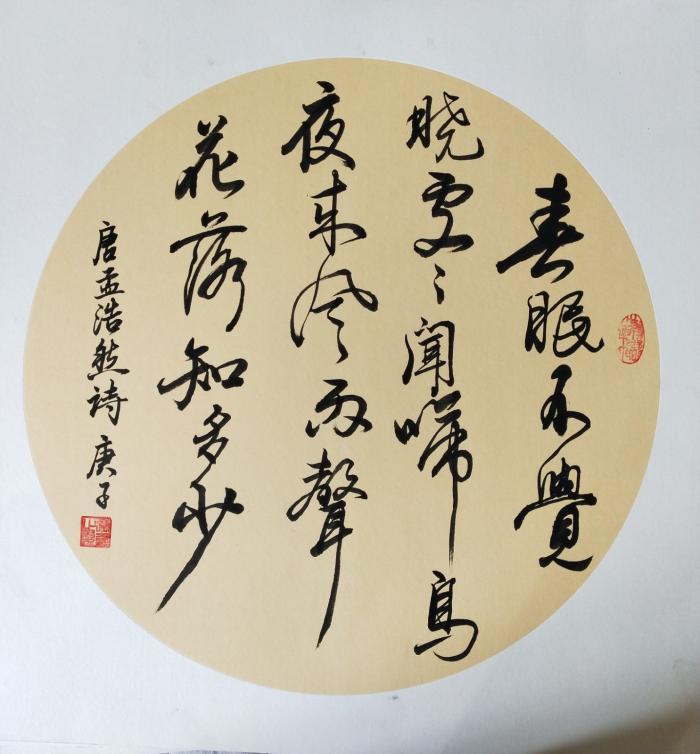 春眠不覺
晓處々聞啼鳥
夜来風雨聲
花落知多少
唐孟浩然詩 庚子